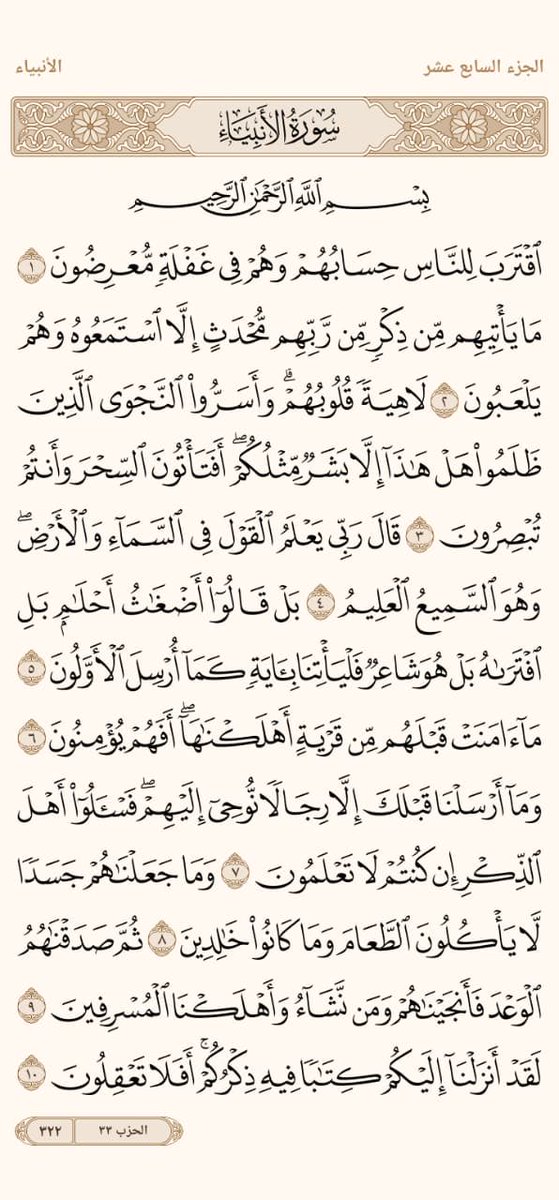 الجزء السابع عشر
الأنبياء
سُورَةُ الأَنبِيَاءِ
بِسۡمِ ٱللَّهِ ٱلرَّحۡمَٰنِ ٱلرَّحِيمِ
ٱقۡتَرَبَ لِلنَّاسِ حِسَابُهُمۡ وَهُمۡ فِي غَفۡلَةٖ مُّعۡرِضُونَ ١
مَا يَأۡتِيهِم مِّن ذِكۡرٖ مِّن رَّبِّهِم مُّحۡدَثٍ إِلَّا ٱسۡتَمَعُوهُ وَهُمۡ
يَلۡعَبُونَ ٢ لَاهِيَةٗ قُلُوبُهُمۡۗ وَأَسَرُّواْ ٱلنَّجۡوَى ٱلَّذِينَ
ظَلَمُواْ هَلۡ هَٰذَآ إِلَّا بَشَرٞ مِّثۡلُكُمۡۖ أَفَتَأۡتُونَ ٱلسِّحۡرَ وَأَنتُمۡ
تُبۡصِرُونَ ٣ قَالَ رَبِّي يَعۡلَمُ ٱلۡقَوۡلَ فِي ٱلسَّمَآءِ وَٱلۡأَرۡضِۖ
وَهُوَ ٱلسَّمِيعُ ٱلۡعَلِيمُ ٤ بَلۡ قَالُوٓاْ أَضۡغَٰثُ أَحۡلَٰمِۭ بَلِ
ٱفۡتَرَىٰهُ بَلۡ هُوَ شَاعِرٞ فَلۡيَأۡتِنَا بِـَٔايَةٖ كَمَآ أُرۡسِلَ ٱلۡأَوَّلُونَ ٥
مَآ ءَامَنَتۡ قَبۡلَهُم مِّن قَرۡيَةٍ أَهۡلَكۡنَٰهَآۖ أَفَهُمۡ يُؤۡمِنُونَ ٦
وَمَآ أَرۡسَلۡنَا قَبۡلَكَ إِلَّا رِجَالٗا نُّوحِيٓ إِلَيۡهِمۡۖ فَسۡـَٔلُوٓاْ أَهۡلَ
ٱلذِّكۡرِ إِن كُنتُمۡ لَا تَعۡلَمُونَ ٧ وَمَا جَعَلۡنَٰهُمۡ جَسَدٗا
لَّا يَأۡكُلُونَ ٱلطَّعَامَ وَمَا كَانُواْ خَٰلِدِينَ ٨ ثُمَّ صَدَقۡنَٰهُمُ
ٱلۡوَعۡدَ فَأَنجَيۡنَٰهُمۡ وَمَن نَّشَآءُ وَأَهۡلَكۡنَا ٱلۡمُسۡرِفِينَ ٩
لَقَدۡ أَنزَلۡنَآ إِلَيۡكُمۡ كِتَٰبٗا فِيهِ ذِكۡرُكُمۡۚ أَفَلَا تَعۡقِلُونَ ١٠
الحزب ٣٣
٣٢٢